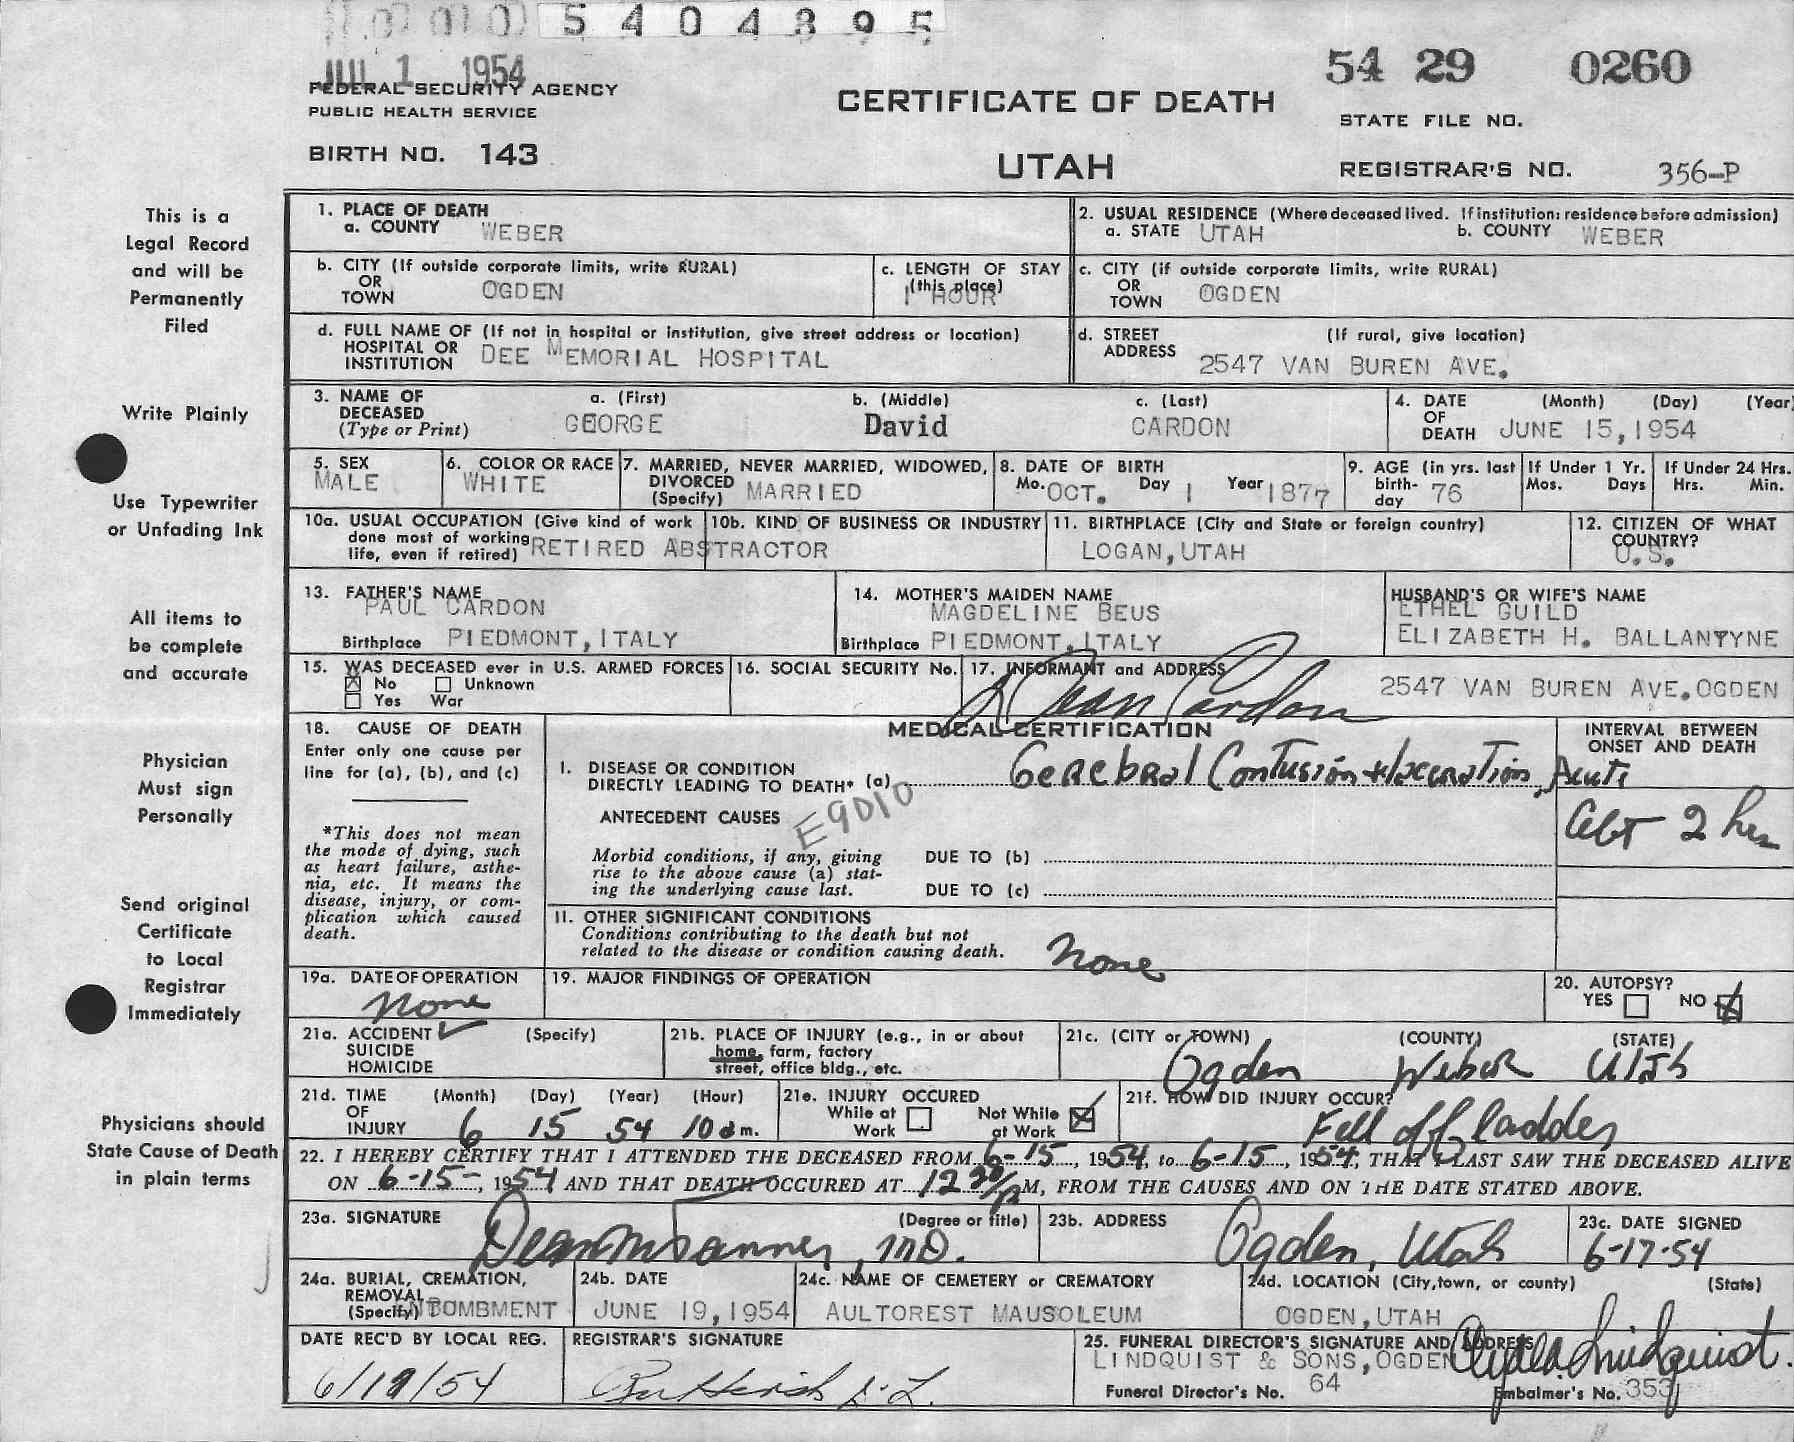 5404895
JUL 1 1954
54 29 0260
FEDERAL SECURITY AGENCY
PUBLIC HEALTH SERVICE
CERTIFICATE OF DEATH
STATE FILE NO.
BIRTH NO. 143
UTAH
REGISTRAR'S NO. 356-P
This is a
Legal Record
and will be
Permanently
Filed
Write Plainly
Use Typewriter
or Unfading Ink
All items to
be complete
and accurate
Physician
Must sign
Personally
Send original
Certificate
to Local
Registrar
Immediately
Physicians should
State Cause of Death
in plain terms
1. PLACE OF DEATH
a. COUNTY WEBER
2. USUAL RESIDENCE (Where deceased lived. If institution: residence before admission)
a. STATE UTAH b. COUNTY WEBER
b. CITY (If outside corporate limits, write RURAL)
OR
TOWN OGDEN
c. LENGTH OF STAY
(this place)
1 HOUR
c. CITY (if outside corporate limits, write RURAL)
OR
TOWN OGDEN
d. FULL NAME OF (If not in hospital or institution, give street address or location)
HOSPITAL OR
INSTITUTION DEE MEMORIAL HOSPITAL
d. STREET (If rural, give location)
ADDRESS
2547 VAN BUREN AVE.
3. NAME OF a. (First) b. (Middle) c. (Last)
DECEASED
(Type or Print) GEORGE David CARDON
4. DATE (Month) (Day) (Year)
OF
DEATH JUNE 15, 1954
5. SEX
MALE
6. COLOR OR RACE
WHITE
7. MARRIED, NEVER MARRIED, WIDOWED,
DIVORCED
(Specify) MARRIED
8. DATE OF BIRTH
Mo. OCT. Day 1 Year 1877
9. AGE (in yrs. last
birth-
day 76
If Under 1 Yr.
Mos. Days
If Under 24 Hrs.
Hrs. Min.
10a. USUAL OCCUPATION (Give kind of work
done most of working
life, even if retired) RETIRED ABSTRACTOR
10b. KIND OF BUSINESS OR INDUSTRY
11. BIRTHPLACE (City and State or foreign country)
LOGAN, UTAH
12. CITIZEN OF WHAT
COUNTRY?
U.S.
13. FATHER'S NAME
PAUL CARDON
Birthplace PIEDMONT, ITALY
14. MOTHER'S MAIDEN NAME
MAGDELINE BEUS
Birthplace PIEDMONT, ITALY
HUSBAND'S OR WIFE'S NAME
ETHEL GUILD
ELIZABETH H. BALLANTYNE
15. WAS DECEASED ever in U.S. ARMED FORCES
X No Unknown
Yes War
16. SOCIAL SECURITY No.
17. INFORMANT and ADDRESS
Dean Cardon 2547 VAN BUREN AVE. OGDEN
18. CAUSE OF DEATH
Enter only one cause per
line for (a), (b), and (c)
*This does not mean
the mode of dying, such
as heart failure, asthe-
nia, etc. It means the
disease, injury, or com-
plication which caused
death.
MEDICAL CERTIFICATION
INTERVAL BETWEEN
ONSET AND DEATH
I. DISEASE OR CONDITION
DIRECTLY LEADING TO DEATH* (a) Cerebral Contusion + laceration, Acute
Abt 2 hrs
ANTECEDENT CAUSES
E9010
Morbid conditions, if any, giving
rise to the above cause (a) stat-
ing the underlying cause last.
DUE TO (b)
DUE TO (c)
II. OTHER SIGNIFICANT CONDITIONS
Conditions contributing to the death but not
related to the disease or condition causing death. None
19a. DATE OF OPERATION
None
19. MAJOR FINDINGS OF OPERATION
20. AUTOPSY?
YES NO X
21a. ACCIDENT ✓ (Specify)
SUICIDE
HOMICIDE
21b. PLACE OF INJURY (e.g., in or about
home, farm, factory
street, office bldg., etc.
21c. (CITY or TOWN) (COUNTY) (STATE)
Ogden Weber Utah
21d. TIME (Month) (Day) (Year) (Hour)
OF
INJURY 6 15 54 10 am.
21e. INJURY OCCURED
While at
Work
Not While
at Work X
21f. HOW DID INJURY OCCUR?
Fell off ladder
22. I HEREBY CERTIFY THAT I ATTENDED THE DECEASED FROM 6-15, 1954, to 6-15, 1954, THAT I LAST SAW THE DECEASED ALIVE
ON 6-15-, 1954 AND THAT DEATH OCCURED AT 12 30 PM, FROM THE CAUSES AND ON THE DATE STATED ABOVE.
23a. SIGNATURE (Degree or title)
Dean M.D.
23b. ADDRESS
Ogden, Utah
23c. DATE SIGNED
6-17-54
24a. BURIAL, CREMATION,
REMOVAL
(Specify) ENTOMBMENT
24b. DATE
JUNE 19, 1954
24c. NAME OF CEMETERY or CREMATORY
AULTOREST MAUSOLEUM
24d. LOCATION (City, town, or county) (State)
OGDEN, UTAH
DATE REC'D BY LOCAL REG.
6/19/54
REGISTRAR'S SIGNATURE
25. FUNERAL DIRECTOR'S SIGNATURE AND ADDRESS
LINDQUIST & SONS, OGDEN Lindquist.
Funeral Director's No. 64
Embalmer's No. 353